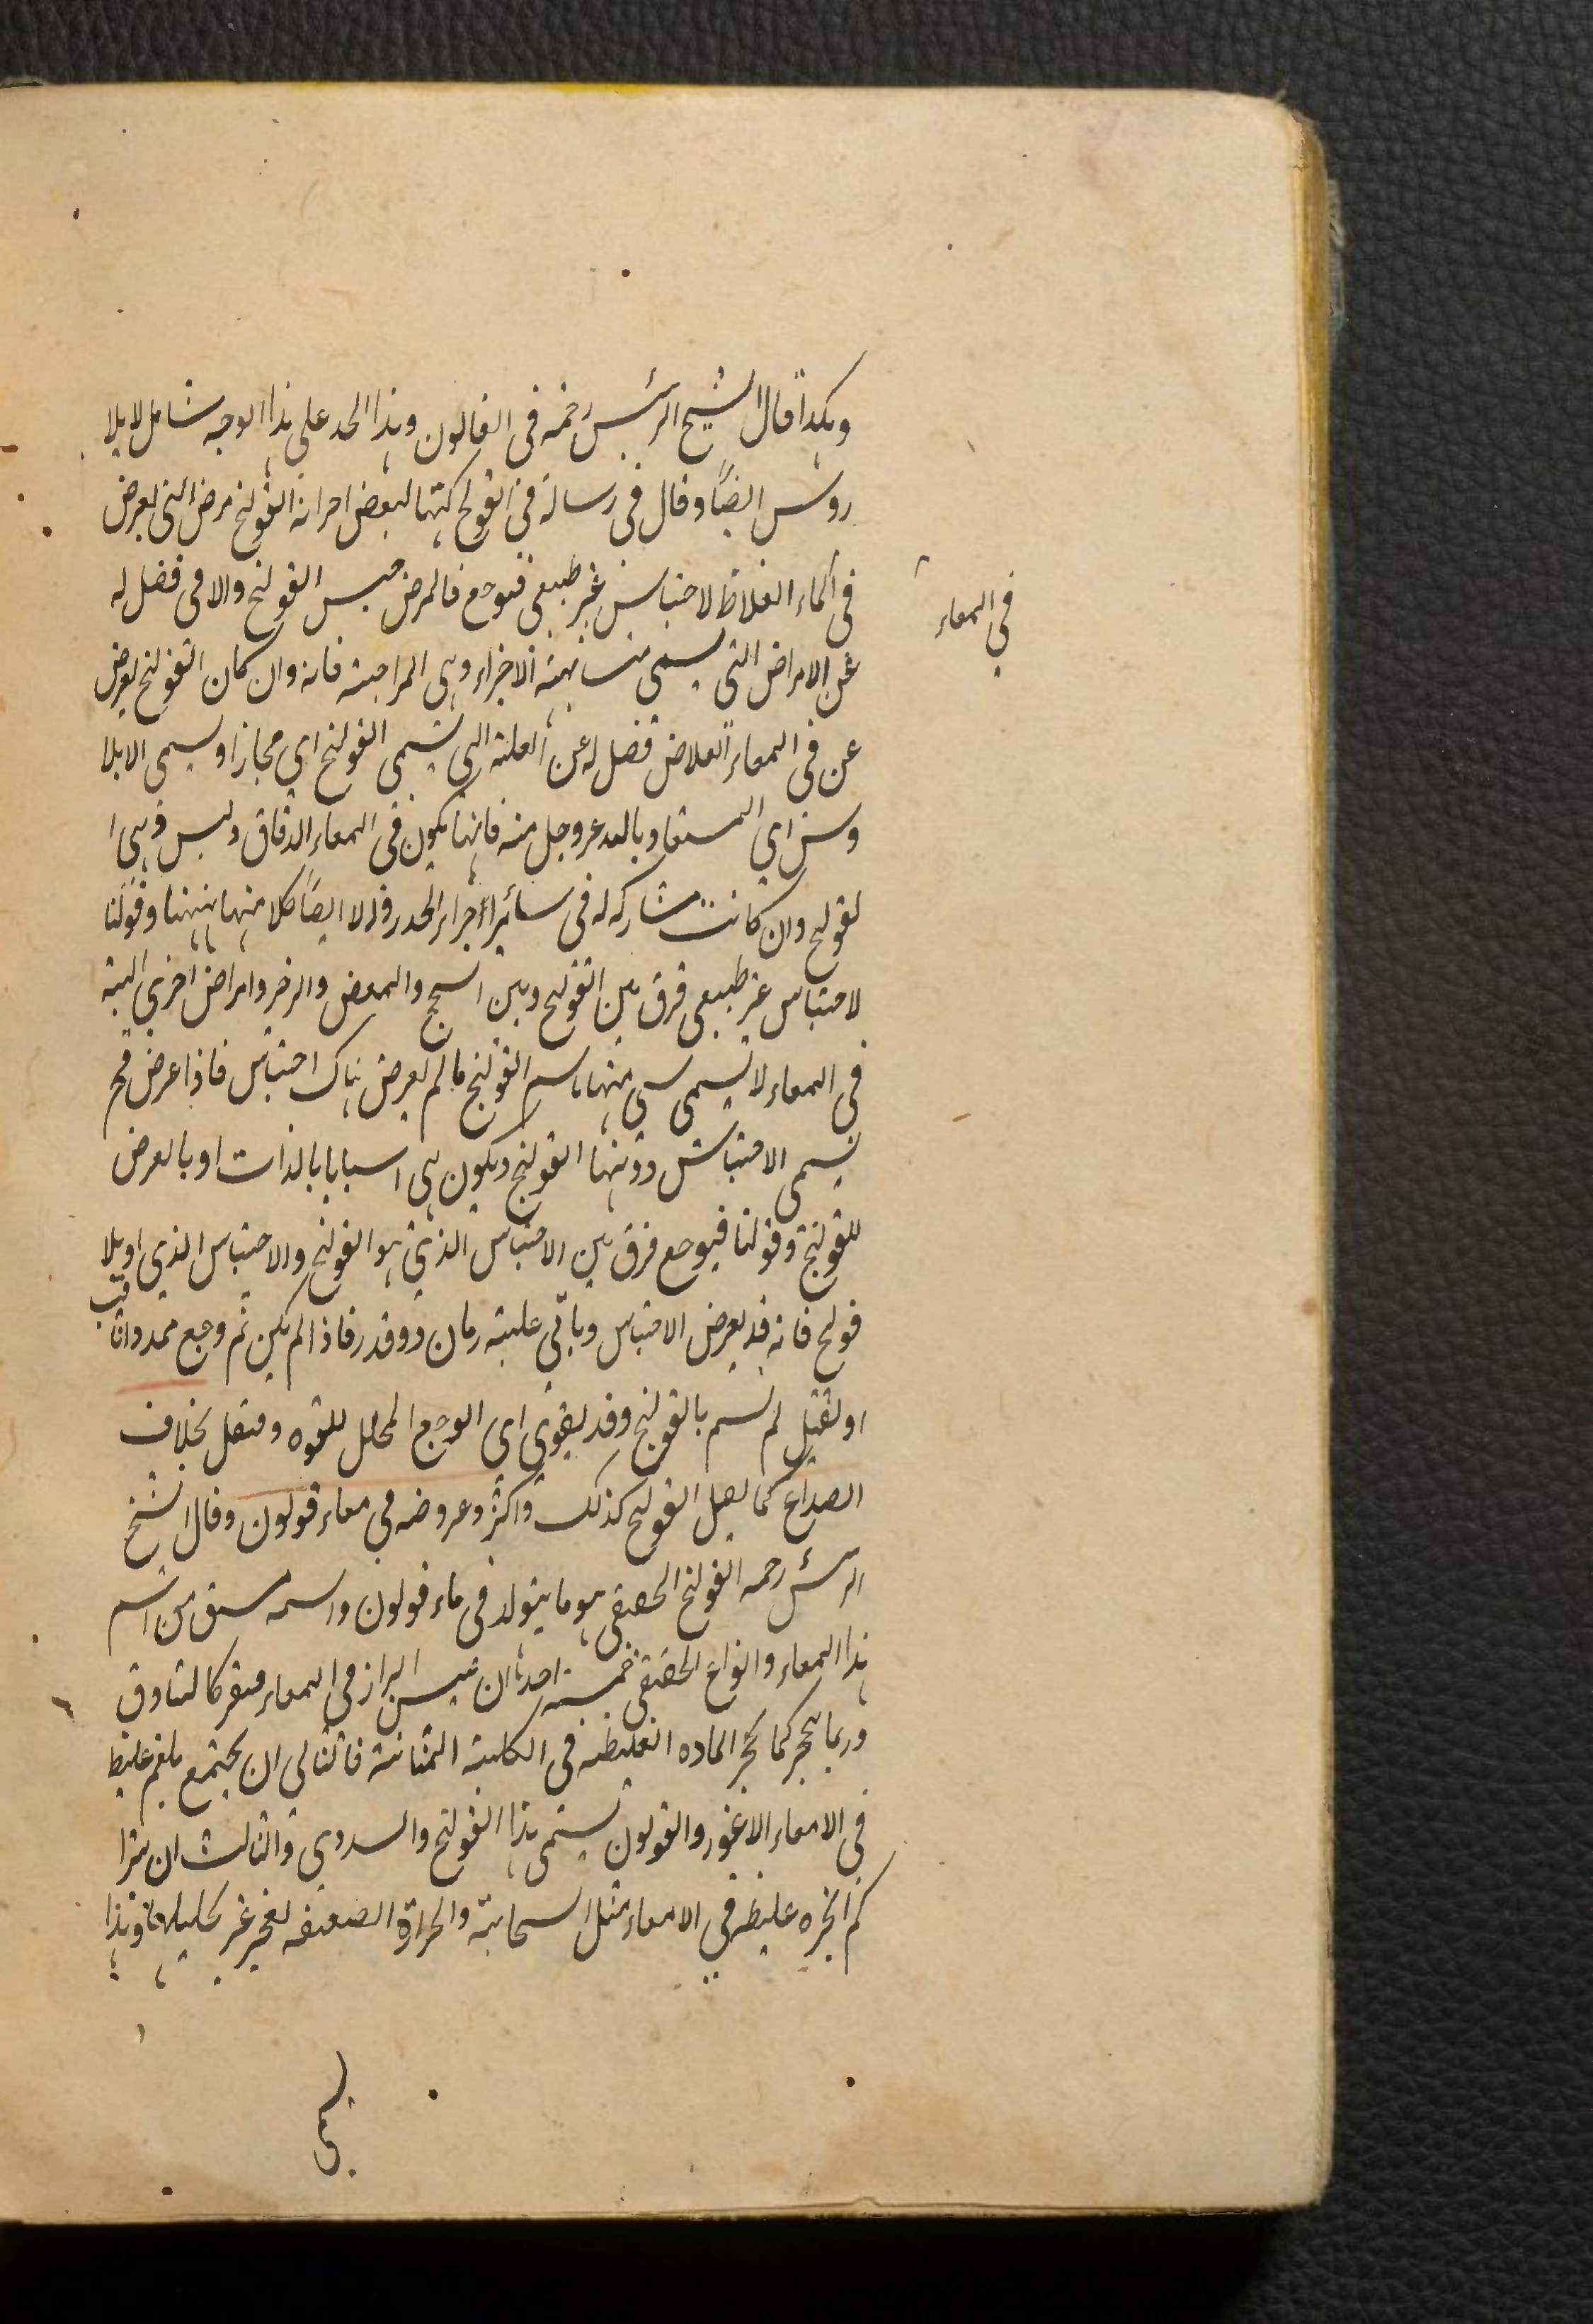 وهكذا قال الشيخ الرئيس رحمه في القانون وهذا الحد على هذا الوجه شامل لايلا
روس ايضًا وقال في رسالة في القولنج كتبها لبعض اخوانه القولنج مرض التي يعرض
في الماء الغلاظ لاحتباس غير طبيعي فتوجع فالمرض جنس القولنج والا في فصل له
في المعاء
عن الامراض التي يسمى متشابهة الاجزاء وهي المزاجية فانه وان كان القولنج يعرض
عن في المعاء الغلاض فصل له عن العلة التي تسمى القولنج اي مجازا ويسمى الايلا
وس اي المستعاد بالله عز وجل منه فانها يكون في المعاء الدقاق وليس وهي ا
لقولنج وان كانت مشاركة له في سائر اجزاء الحد ولا ايضًا كلا منها ههنا وقولنا
لاحتباس غير طبيعي فرق بين القولنج وبين السحج والمغص والزحر وامراض اخرى البتة
في المعاء لا تسمى شي منها باسم القولنج ما لم يعرض هناك احتباس فاذا عرض فح
يسمى الاحتباس دونها القولنج ويكون هي اسبابا بالذات او بالعرض
للقولنج وقولنا فيوجع فرق بين الاحتباس الذي هو القولنج والاحتباس الذي او بلا
قولنج فانه قد يعرض الاحتباس وياتي عليه زمان ذو قدر فاذا لم يكن ثم وجع ممدد وثاقب
او ثقيل لم تسم بالقولنج وقد يقوى اي الوجع المحلل للقوه ومنقل بخلاف
الصداع كما يعمل القولنج كذلك واكثر وعروضه في معاء قولون وقال الشيخ
الرئيس رحمه القولنج الحقيقي هو ما يتولد في ماء قولون واسمه مشتق من اسم
هذا المعاء وانواع الحقيقي خمسة احدها ان يحبس البراز في المعاء فيتقر كالبنادق
وربما تحجر كما تحجر الماده الغليظه في الكلية المثانة فالثاني ان يجتمع بلغم غليظ
في الامعاء الاعور والقولون يسمى هذا القولنج والسددي والثالث ان يترا
كم ابخره غليظه في الامعاء مثل السحابة والحرارة الضعيفه لغير غير تحليلها وهذا